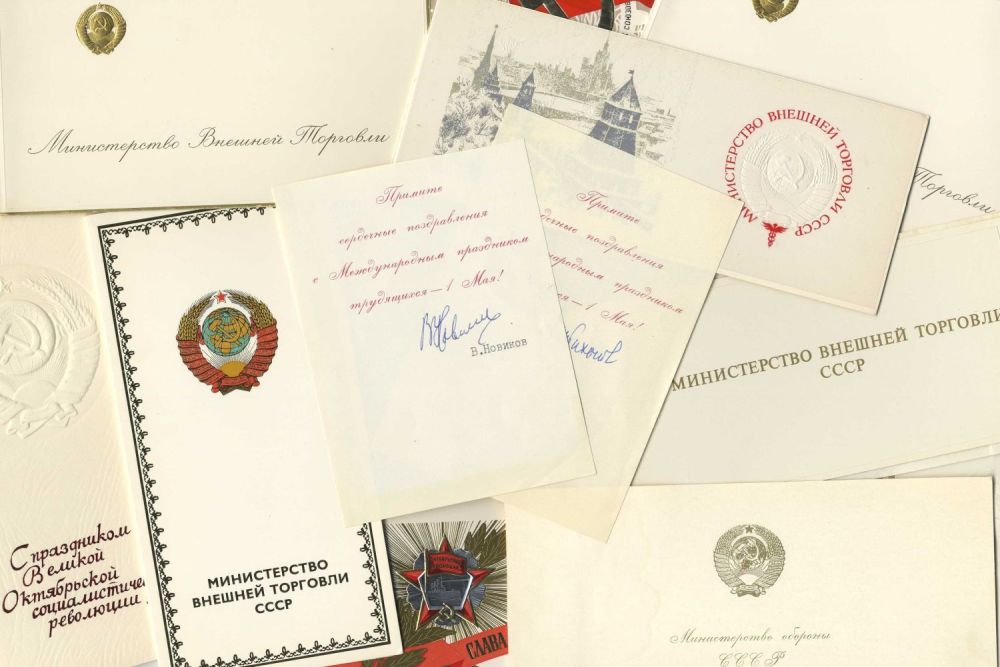 Министерство Внешней Торговли
МИНИСТЕРСТВО ВНЕШНЕЙ ТОРГОВЛИ СССР
Торговли
Примите
сердечные поздравления
с Международным праздником
трудящихся — 1 Мая!
В.Новиков
Примите
поздравления
праздником
1 Мая!
МИНИСТЕРСТВО ВНЕШНЕЙ ТОРГОВЛИ
СССР
С праздником
Великой
Октябрьской
социалистичес
революции.
МИНИСТЕРСТВО
ВНЕШНЕЙ ТОРГОВЛИ
СССР
СЛАВА
Министерство обороны
СССР